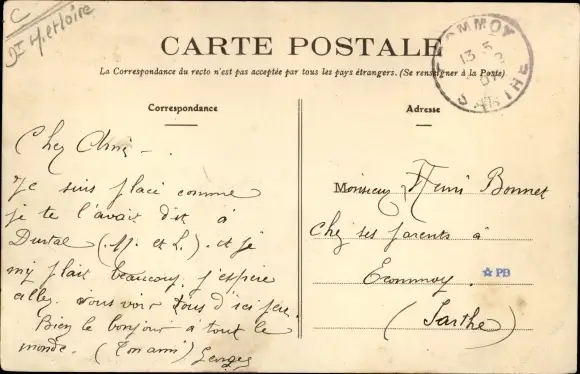 C
Dt M.etLoire
CARTE POSTALE
La Correspondance du recto n'est pas acceptée par tous les pays étrangers. (Se renseigner à la Poste)
ECOMMOY
13 5
07
SARTHE
Correspondance
Cher Ami -
Je suis placé comme
je te l'avait dit à
Durtal (M. et L.). et je
my plait beaucoup j'espère
aller vous voir tous d'ici
Bien le bonjour à tout le
monde. (Ton ami) Georges
Adresse
Monsieur Henri Bonnet
Chez ses parents à
Ecommoy.
(Sarthe)
☆PB